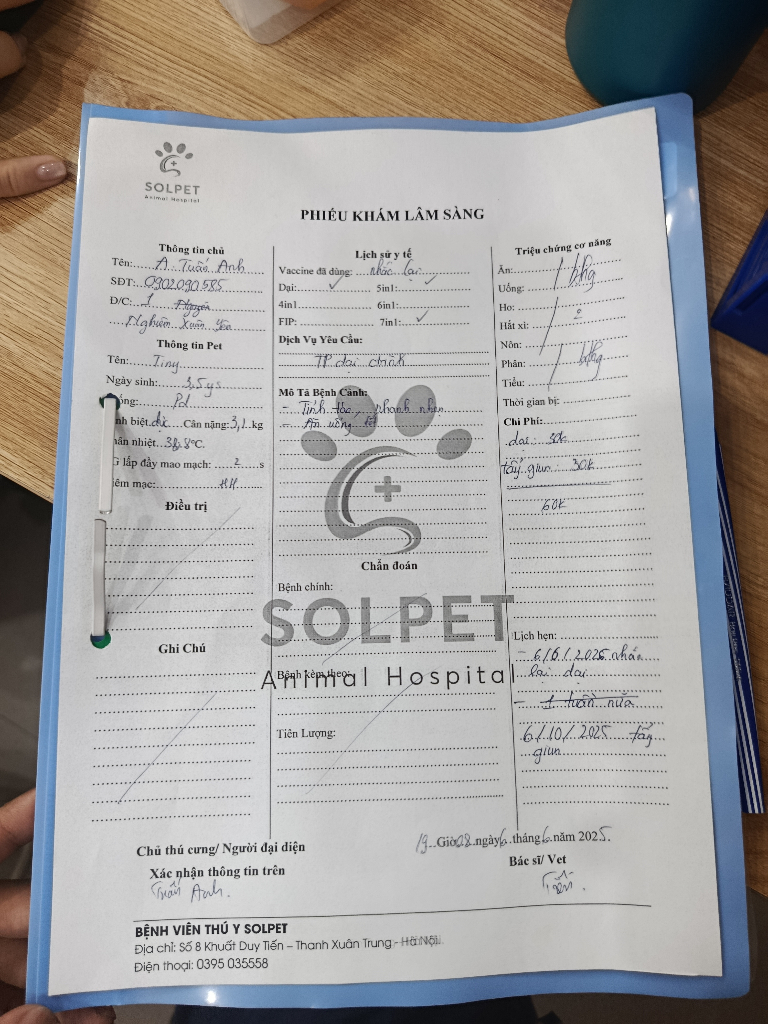 SOLPET
Animal Hospital
PHIẾU KHÁM LÂM SÀNG
Thông tin chủ
Tên: A Tuấn Anh
SĐT: 0902090585
Đ/C: 1
Nghiêm Xuân Yêm
Thông tin Pet
Tên: Tiny
Ngày sinh: 3,5 ys
ống: Pd
nh biệt: Cân nặng: 3,1 kg
ân nhiệt 38,8 °C.
G lấp đầy mao mạch: 2 s
iêm mạc: HH
Điều trị
Ghi Chú
Lịch sử y tế
Vaccine đã dùng: nhắc lại
Dại: ✓ 5in1: ✓
4in1 6in1:
FIP: 7in1: ✓
Dịch Vụ Yêu Cầu:
TP dại chó
Mô Tả Bệnh Cảnh:
- Tỉnh táo, nhanh nhẹn
- Ăn uống tốt
Chẩn đoán
Bệnh chính:
SOLPET
Bệnh kèm theo:
Animal Hospital
Tiên Lượng:
Triệu chứng cơ năng
Ăn:
Uống: bthg
Ho:
Hắt xì:
Nôn:
Phân: bthg
Tiểu:
Thời gian bị:
Chi Phí:
dại: 30k
tẩy giun: 30k
60k
Lịch hẹn:
- 6/6/2026 nhắc
lại dại
- 1 tuần nữa
6/10/2025 tẩy
giun
Chủ thú cưng/ Người đại diện
Xác nhận thông tin trên
Tuấn Anh.
19 Giờ 08 ngày 6 tháng 6 năm 2025.
Bác sĩ/ Vet
BỆNH VIÊN THÚ Y SOLPET
Địa chỉ: Số 8 Khuất Duy Tiến – Thanh Xuân Trung - Hà Nội.
Điện thoại: 0395 035558